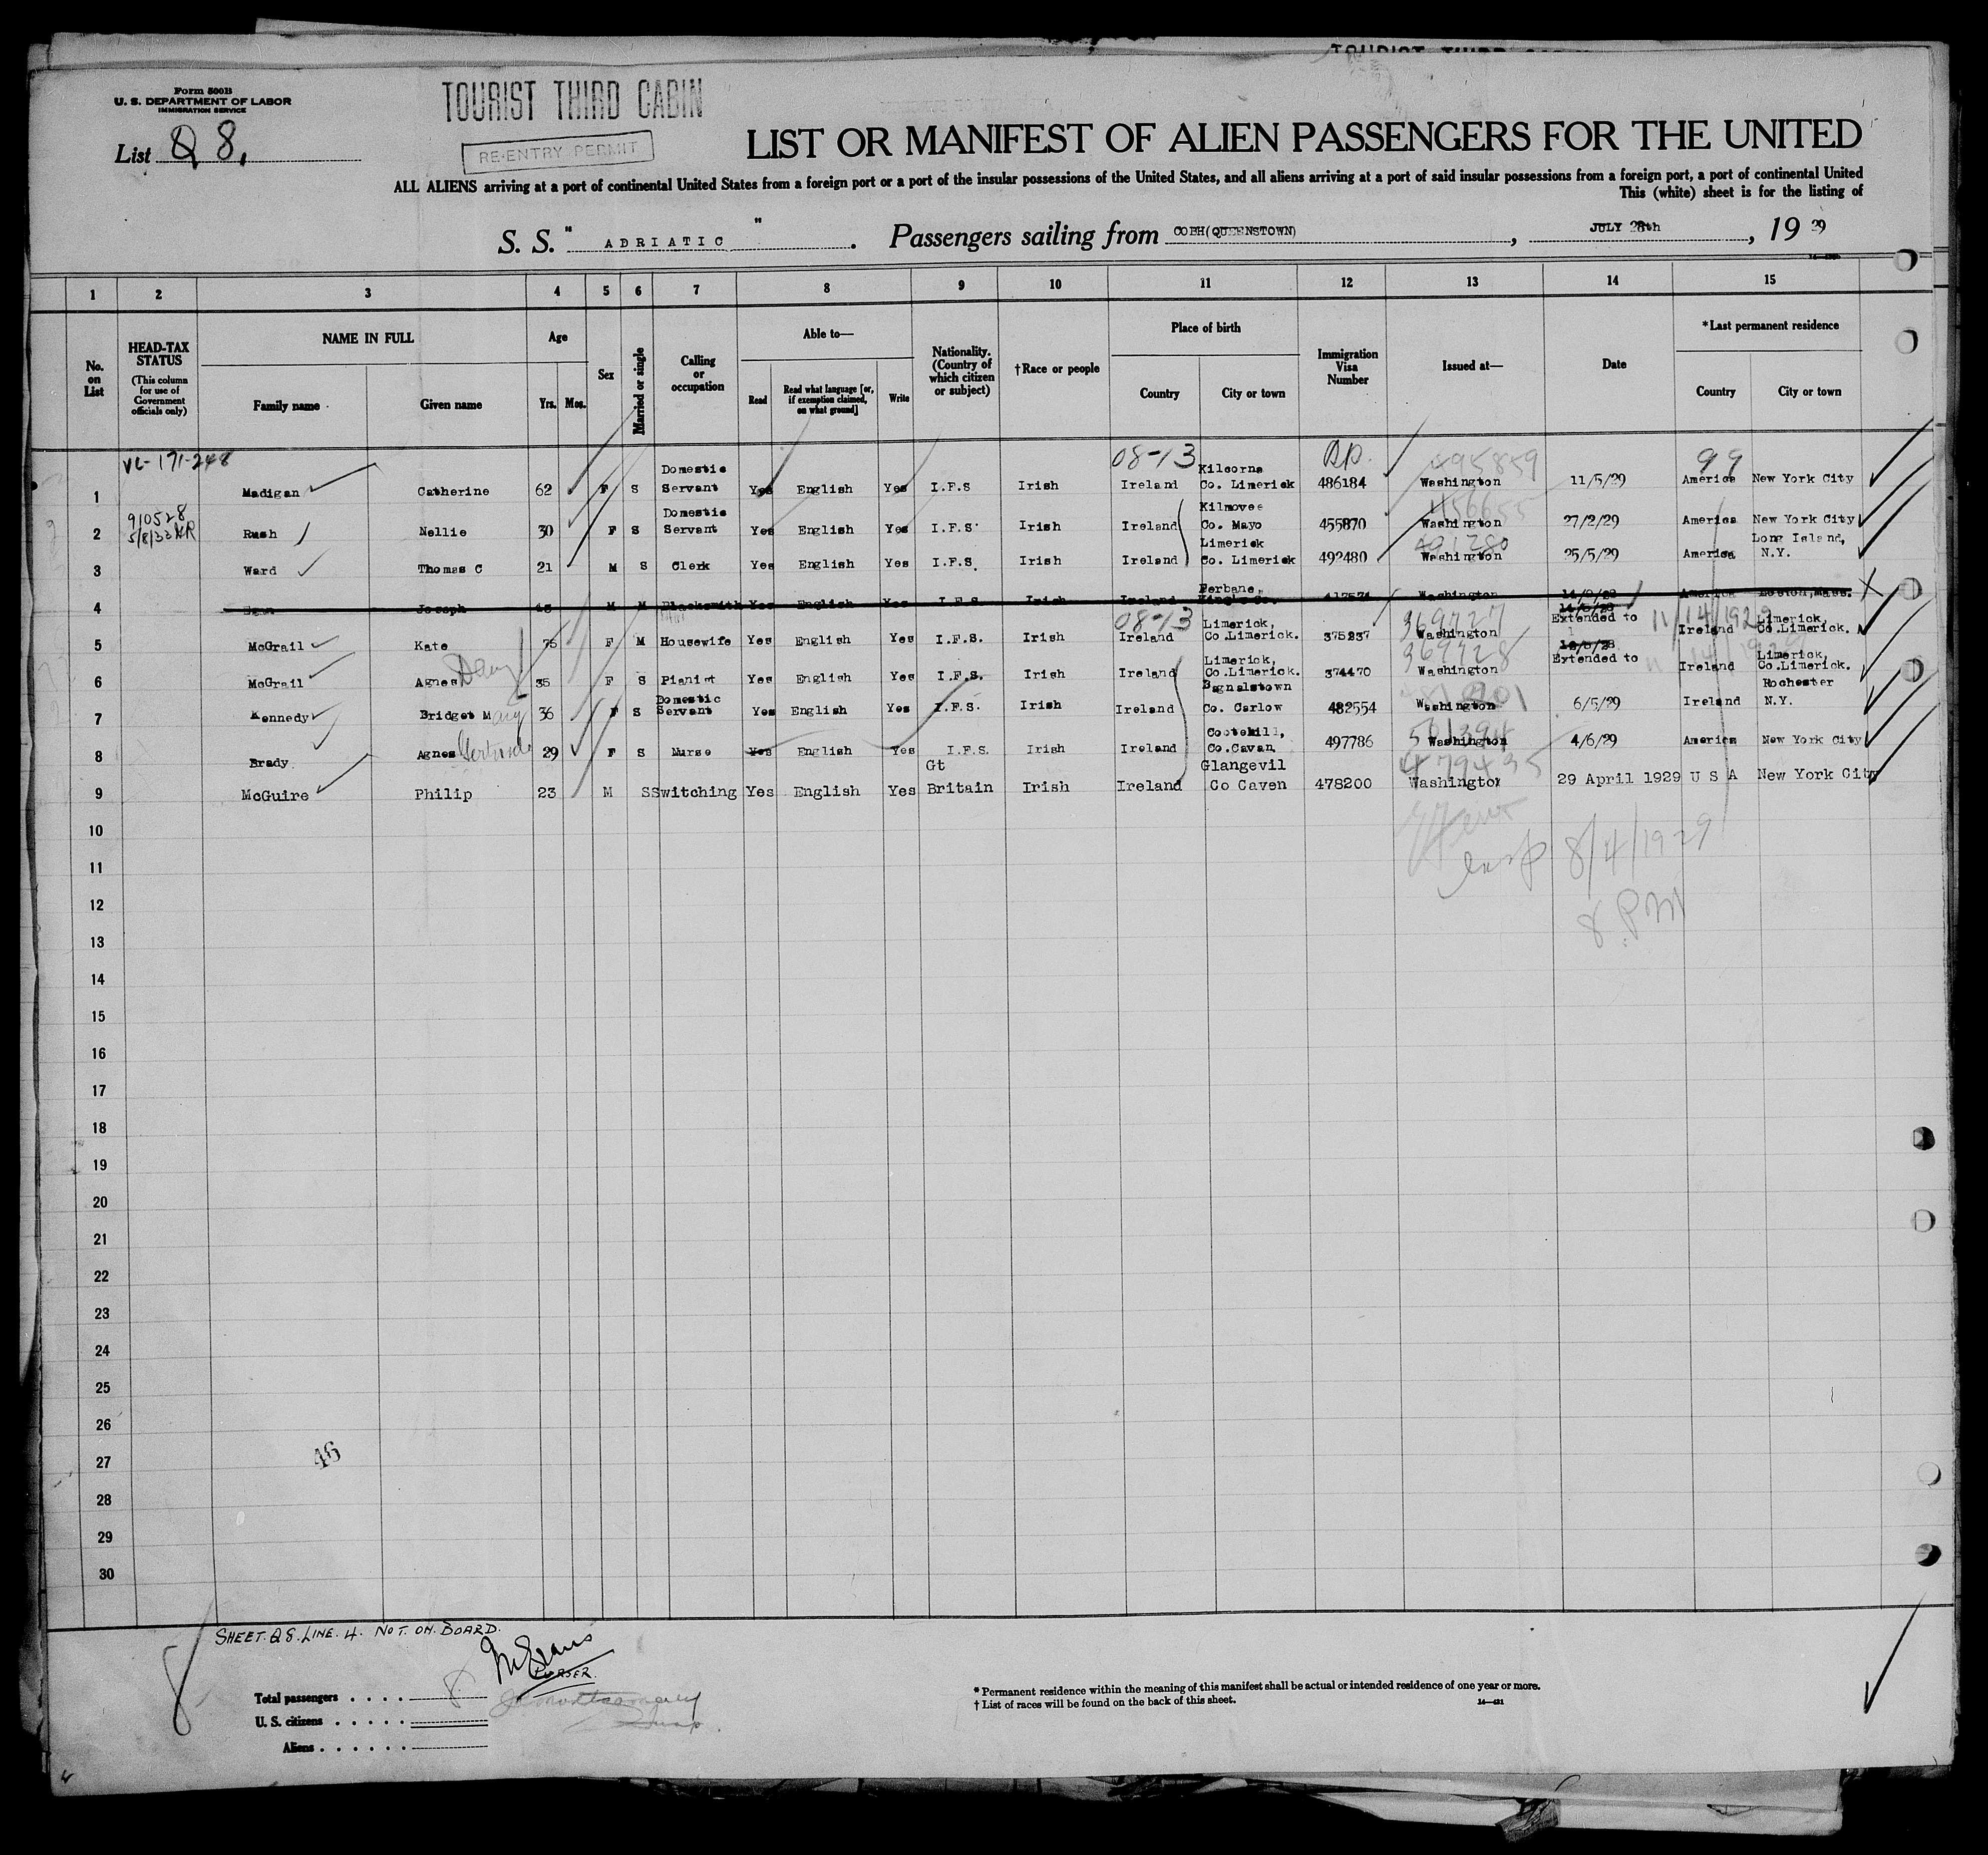 TOURIST THIRD CABIN
Form 500B
U. S. DEPARTMENT OF LABOR
IMMIGRATION SERVICE
List Q 8,
RE-ENTRY PERMIT
LIST OR MANIFEST OF ALIEN PASSENGERS FOR THE UNITED
ALL ALIENS arriving at a port of continental United States from a foreign port or a port of the insular possessions of the United States, and all aliens arriving at a port of said insular possessions from a foreign port, a port of continental United
This (white) sheet is for the listing of
S. S. " ADRIATIC " . Passengers sailing from COBH(QUEENSTOWN) , JULY 28th , 19 29
1 2 3 4 5 6 7 8 9 10 11 12 13 14 15
No. on List
HEAD-TAX STATUS (This column for use of Government officials only)
NAME IN FULL Family name Given name
Age Yrs. Mos.
Sex
Married or single
Calling or occupation
Able to— Read Read what language [or, if exemption claimed, on what ground] Write
Nationality. (Country of which citizen or subject)
†Race or people
Place of birth Country City or town
Immigration Visa Number
Issued at—
Date
*Last permanent residence Country City or town
VL-171-248 08-13 RP. 495859 99
1 Madigan Catherine 62 F S Domestic Servant Yes English Yes I.F.S Irish Ireland Kilcorna Co. Limerick 486184 Washington 11/5/29 America New York City
910528 5/8/33 456655
2 Rush Nellie 30 F S Domestic Servant Yes English Yes I.F.S. Irish Ireland Kilmovee Co. Mayo 455870 Washington 27/2/29 America New York City
491280
3 Ward Thomas C 21 M S Clerk Yes English Yes I.F.S. Irish Ireland Limerick Co. Limerick 492480 Washington 25/5/29 America Long Island, N.Y.
4 Joseph M M Blacksmith Yes English Yes I.F.S. Irish Ireland Ferbane, King's Co. Washington America Boston,Mass. X
08-13 369727 11/14/1929
5 McGrail Kate 75 F M Housewife Yes English Yes I.F.S. Irish Ireland Limerick, Co.Limerick. 375237 Washington Extended to Ireland Limerick, Co.Limerick.
369728
6 McGrail Agnes 35 F S Pianist Yes English Yes I.F.S. Irish Ireland Limerick, Co.Limerick. 374470 Washington Extended to Ireland Limerick, Co.Limerick.
7 Kennedy Bridget Mary 36 F S Domestic Servant Yes English Yes I.F.S. Irish Ireland Bagnalstown Co. Carlow 482554 Washington 6/5/29 Ireland Rochester N.Y.
8 Brady Agnes Gertrude 29 F S Nurse Yes English Yes I.F.S. Irish Ireland Cootehill, Co.Cavan 497786 Washington 4/6/29 America New York City
479435
9 McGuire Philip 23 M S Switching Yes English Yes Gt Britain Irish Ireland Glangevil Co Caven 478200 Washington 29 April 1929 U S A New York City
10
11 insp 8/4/1929
12 8 PM
13
14
15
16
17
18
19
20
21
22
23
24
25
26
27 46
28
29
30
SHEET. Q8. LINE. 4. NOT. ON. BOARD.
PURSER.
8
Total passengers . . . . 8
U. S. citizens . . . . .
Aliens . . . . . .
* Permanent residence within the meaning of this manifest shall be actual or intended residence of one year or more.
† List of races will be found on the back of this sheet. 14—421